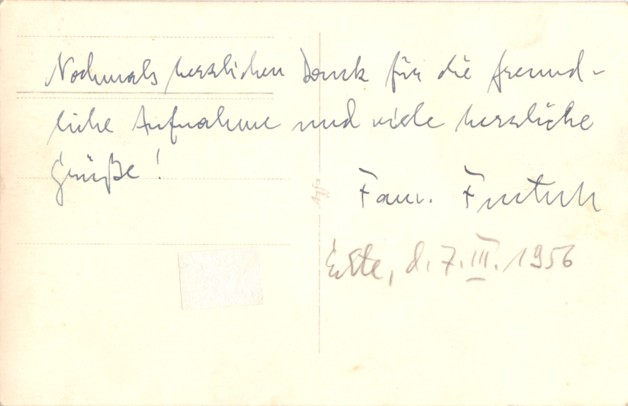 Nochmals herzlichen Dank für die freund-
liche Aufnahme und viele herzliche
Grüße!
Fam.
d. 7. III. 1956